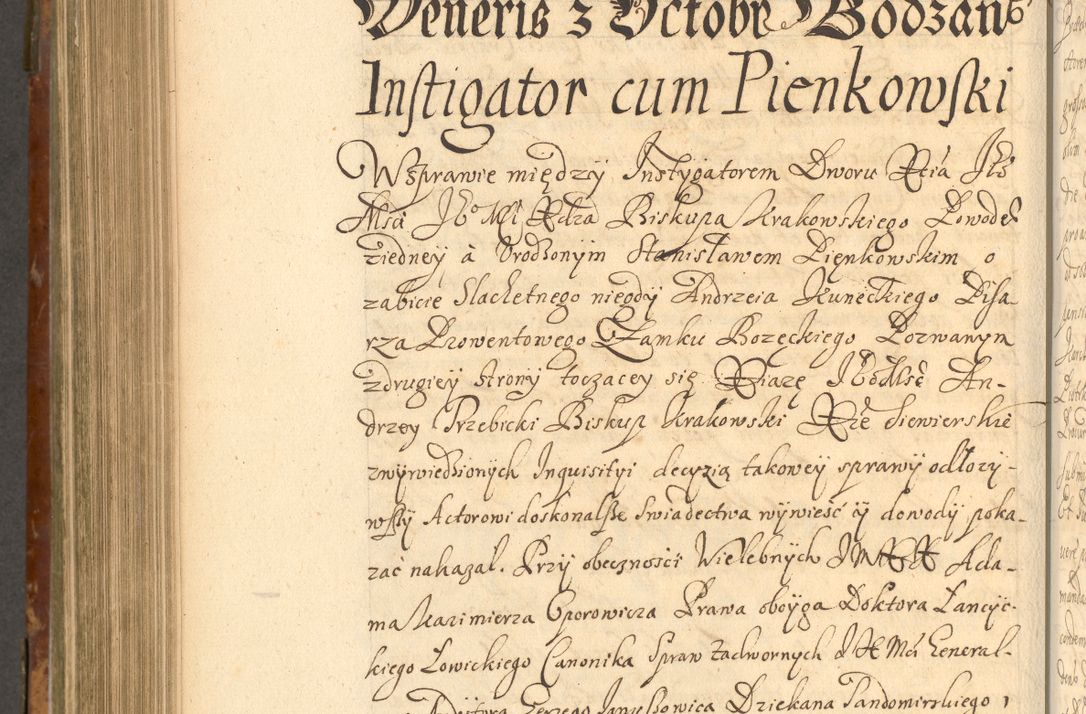 Veneris 3 Octobr Bodzan
Instigator cum Pienkowski
Wsprawie między Instygatorem Dworu
Biskupa Krakowskiego Powode
ziedney á Urodzonym Stanisławem Pięnkowskim o
zabicie Slachetnego niegdy Andrzeia Kuneckiego Pisa-
rza Prowentowego Zamku Bozęckiego Pozwanym
zdrugiey strony toczącey się An-
drzey Trzebicki Biskup Krakowski Siewierskie
zwywiedzionych Inquisityi decyzią takowey sprawy odłoży-
wszy Actorowi doskonalsze swiadectwa wywieść y dowody poka-
zać nakazał. Przy obecznosci Wielebnych Ada-
ma Kazimierza Oporowicza Prawa oboyga Doktora Łancyc-
kiego Łowickiego Canonika Spraw zadwornych General-
Auditora Ierzego Dziekana Sandomirskiego